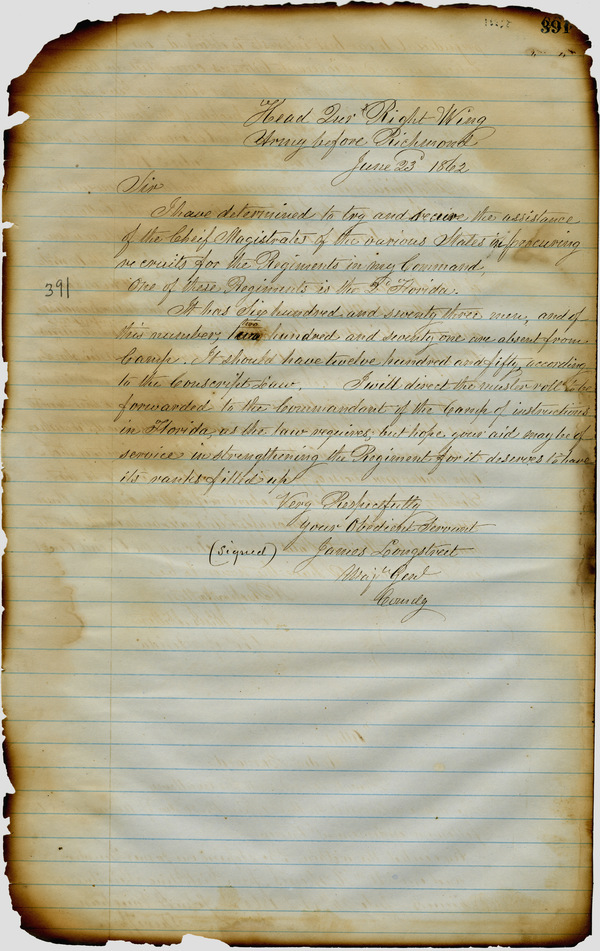 391
Head Qurs Right Wing
Army before Richmond
June 23d 1862
Sir
I have determined to try and receive the assistance
of the Cheif Magistrates of the various States in procuring
recruits for the Regiments in my Command.
One of these Regiments is the 2d Florida.
It has Six hundred and seventy three men, and of
this number, two hundred and seventy one are absent from
Camp. It should have twelve hundred and fifty, according
to the Conscript Law. I will direct the muster roll to be
forwarded to the Commandant of the Camp of instructions
in Florida, as the law requires, but hope your aid may be of
service in strengthening the Regiment for it deserves to have
its ranks filled up
391
Very Respectfully
your Obedient Servant
(signed) James Longstreet
Maj. Genl
Comdg